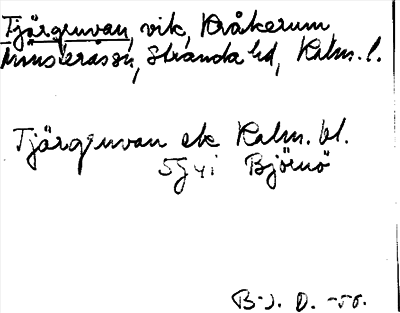 Tjärgruvan, vik, Kråkerum
Mönsterås sn, Stranda hd, Kalm. l.
Tjärgruvan ek Kalm. bl.
5G4i Björnö
B-J. O. -56.